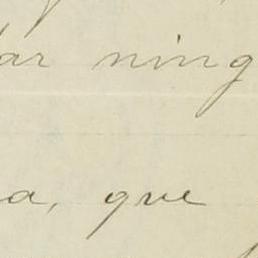 ar ning
a, que